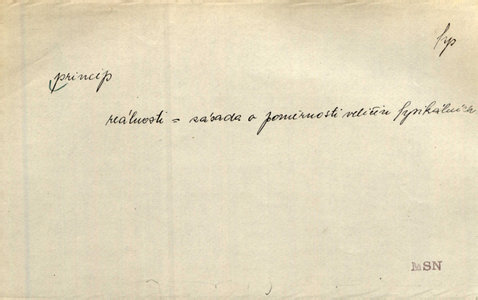 fyp
princip
reálnosti = zásada o poměrnosti veličin fysikálních
MSN